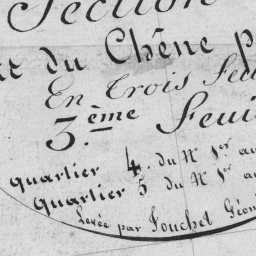 Section
du Chêne
En Trois
3.ème Feui
quartier 4. du N° 1er au
Quartier 5 du N° 1er au
Levée par Fouchet Géom